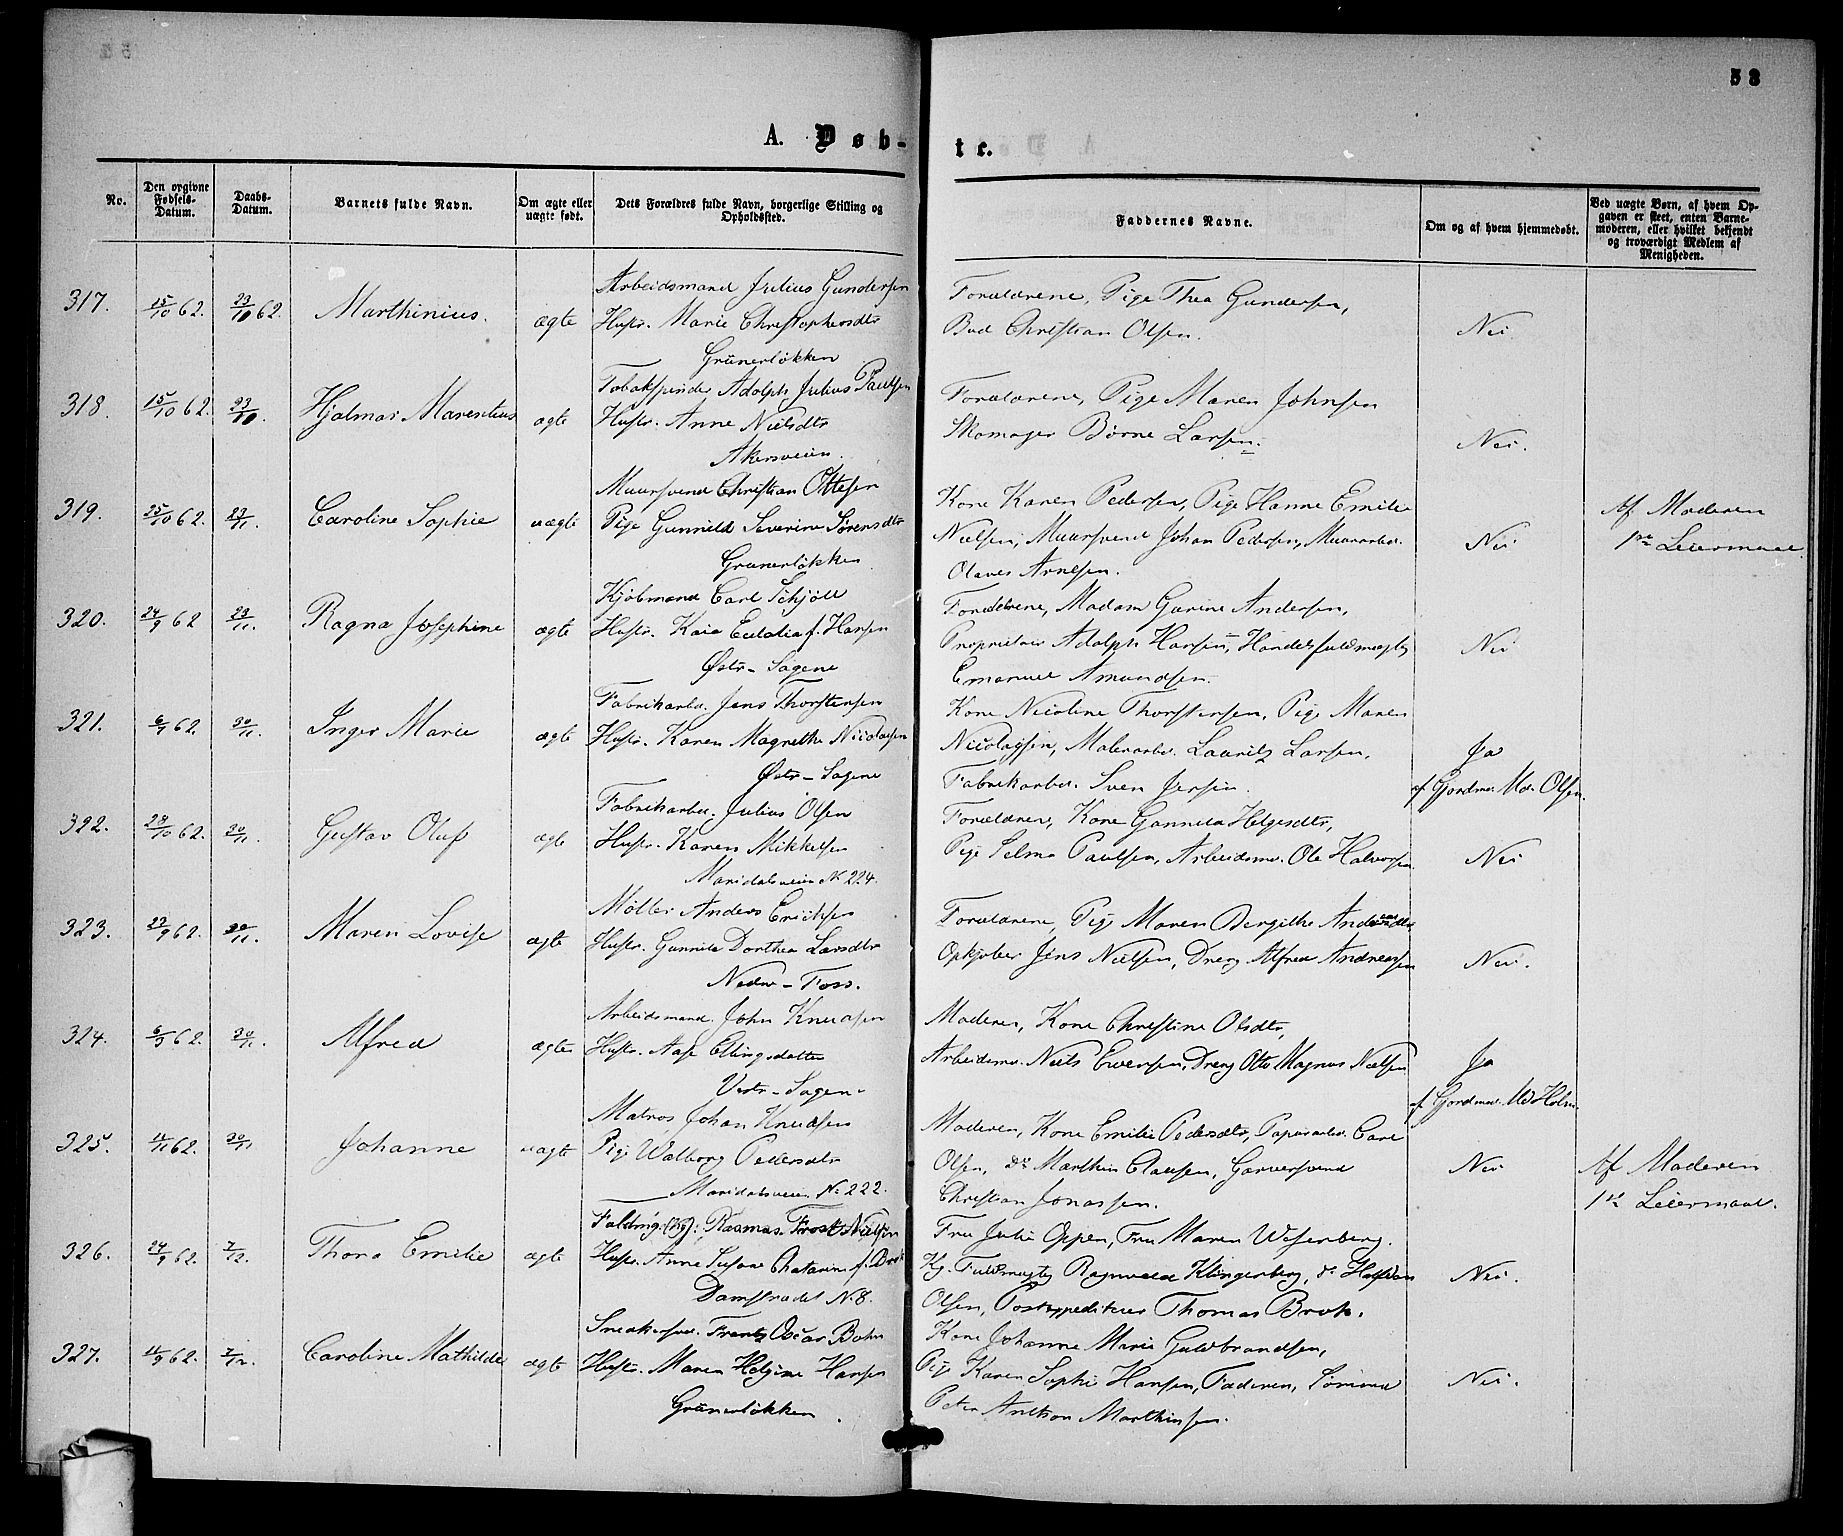 53
A. Døb-
te.
No.
Den opgivne Fødsels-Datum.
Daabs-Datum.
Barnets fulde Navn.
Om ægte eller uægte født.
Dets Forældres fulde Navn, borgerlige Stilling og Opholdssted.
Faddernes Navne.
Om og af hvem hjemmedøbt.
Ved uægte Børn, af hvem Opgaven er skeet, enten Barnemoderen, eller hvilket bekjendt og troværdigt Medlem af Menigheden.
317. 15/10 62. 23/10 62. Marthinius. ægte
Arbeidsmand Julius Gundersen
Hustr. Marie Christophersdtr
Grünerløkken
Forældrene, Pige Thea Gundersen,
Bud Christian Olsen.
Nei.
318. 15/10 62. 23/10. Hjalmar Marentius ægte
Tobakspinder Adolph Julius Paulsen
Hustr. Anne Nielsdtr
Akersveien.
Forældrene, Pige Maren Johnsen
Skomager Børne Larsen.
Nei.
319. 25/10 62. 23/11. Caroline Sophie uægte
Muursvend Christian Ottesen
Pige Gunnild Severine Sørensdtr
Grünerløkken.
Kone Karen Pedersen, Pige Hanne Emilie
Nielsen, Muursvend Johan Pedersen, Muurarbei.
Olaves Arnesen.
Nei
Af Moderen
1ste Leiermaal.
320. 24/9 62 23/11. Ragna Josephine ægte
Kjøbmand Carl Schjøll
Hustr. Kaia Eulalia f. Hansen
Østr-Sagene
Forældrene, Madam Gurine Andersen,
Proprietair Adolph Hansen, Handelsfuldmægtig
Emanuel Amundsen.
Nei
321. 6/9 62. 30/11. Inger Marie ægte
Fabrikarbei. Jens Thorstensen
Hustr. Karen Magrethe Nicolaysen
Østr-Sagene
Kone Nicoline Thorstensen, Pige Maren
Nicolaysen, Malerarbei. Lauritz Larsen,
Fabrikarbei. Sven Jensen.
Ja
af Gjordmo. Md. Olsen.
322. 28/10 62. 30/11. Gustav Oluf ægte
Fabrikarbei. Julius Olsen
Hustr. Karen Mikkelsen
Maridalsveien No 224.
Forældrene, Kone Gunnild Helgesdtr,
Pige Selma Paulsen, Arbeidsm. Ole Halvorsen
Nei
323. 23/9 62. 30/11. Maren Lovise ægte
Møller Anders Erichsen
Hustr. Gunnild Dorthea Larsdtr
Nedre-Foss.
Forældrene, Pige Maren Bergithe
Opkjøber Jens Nielsen, Dreng Alfred Andreasen
Nei.
324. 6/5 62. 30/11. Alfred ægte
Arbeidsmand. John Knudsen
Hustr. Aase Ellingsdatter
Vestr-Sagene
Moderen, Kone Christine Olsdtr,
Arbeidsm. Niels Evensen, Dreng Otto Magnus Nielsen
Ja
af Gjordmo. Md Holm.
325. 11/11 62. 30/11 Johanne uægte
Matros Johan Knudsen
Pige Walborg Pedersdtr
Maridalsveien No 222.
Moderen, Kone Emilie Pedersdtr, Papirarbei. Carl
Olsen, do Marthin Clausen, Garversvend
Christian Jonassen.
Nei
Af Moderen
1ste Leiermaal.
326. 24/9 62. 7/12. Thora Emilie ægte
Rasmus Frost Nielsen
Hustr. Anne Susane Chatarine f. Brok
Damstrædet No 8.
Fru Julie Oppen, Fru Maren Wesenberg.
Kg. Fuldmægtig Ragnvald Klingenberg, do Halfdan
Olsen, Postexpediteur Thomas Brok.
Nei.
327. 11/9 62. 7/12. Caroline Mathilde ægte
Snedkersve. Frantz Oscar Bohn
Hustr. Maren Helgine Hansen
Grünerløkken.
Kone Johanne Marie Guldbrandsen,
Pige Karen Sophie Hansen, Faderen, Sømand
Peter Anthon Marthinsen.
Nei.